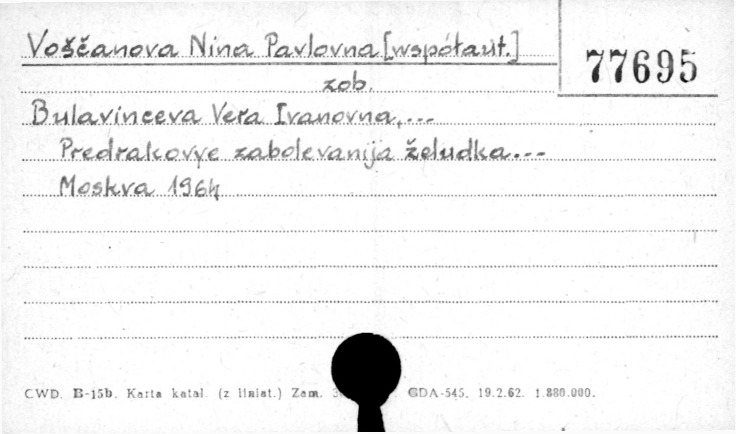 Voščanova Nina Pavlovna [współaut.]
77695
zob.
Bulavinceva Vera Ivanovna,...
Predrakovye zabolevanija želudka...
Moskva 1964
CWD. B-15b. Karta katal. (z liniat.) Zam. GDA-545. 19.2.62. 1.880.000.